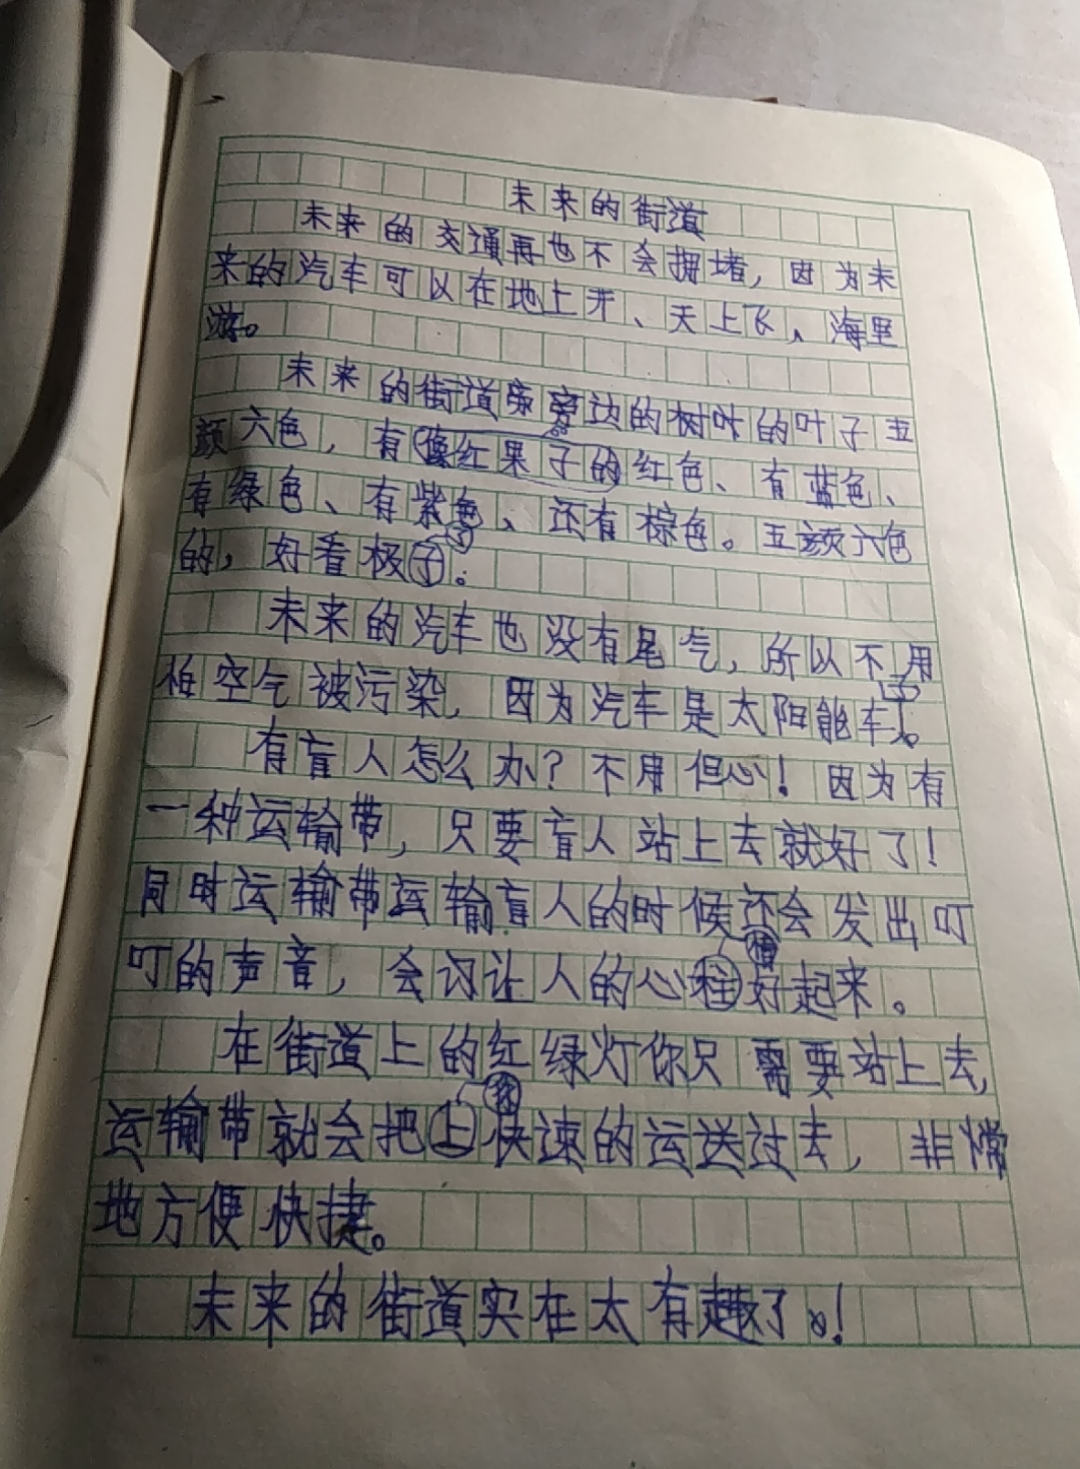 未来的街道
未来的交通再也不会拥堵，因为未
来的汽车可以在地上开、天上飞、海里
游。
未来的街道旁边的树叶的叶子五
颜六色，有像红果子的红色、有蓝色、
有绿色、有紫色、还有棕色。五颜六色
的，好看极了。
未来的汽车也没有尾气，所以不用
怕空气被污染，因为汽车是太阳能车。
有盲人怎么办？不用但心！因为有
一种运输带，只要盲人站上去就好了！
同时运输带运输盲人的时候还会发出叮
叮的声音，会让人的心情好起来。
在街道上的红绿灯你只需要站上去，
运输带就会把你快速的运送过去，非常
地方便快捷。
未来的街道实在太有趣了！